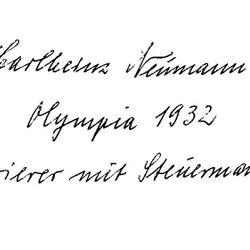 Karlheinz Neümann
Olympia 1932
Vierer mit Steüermann